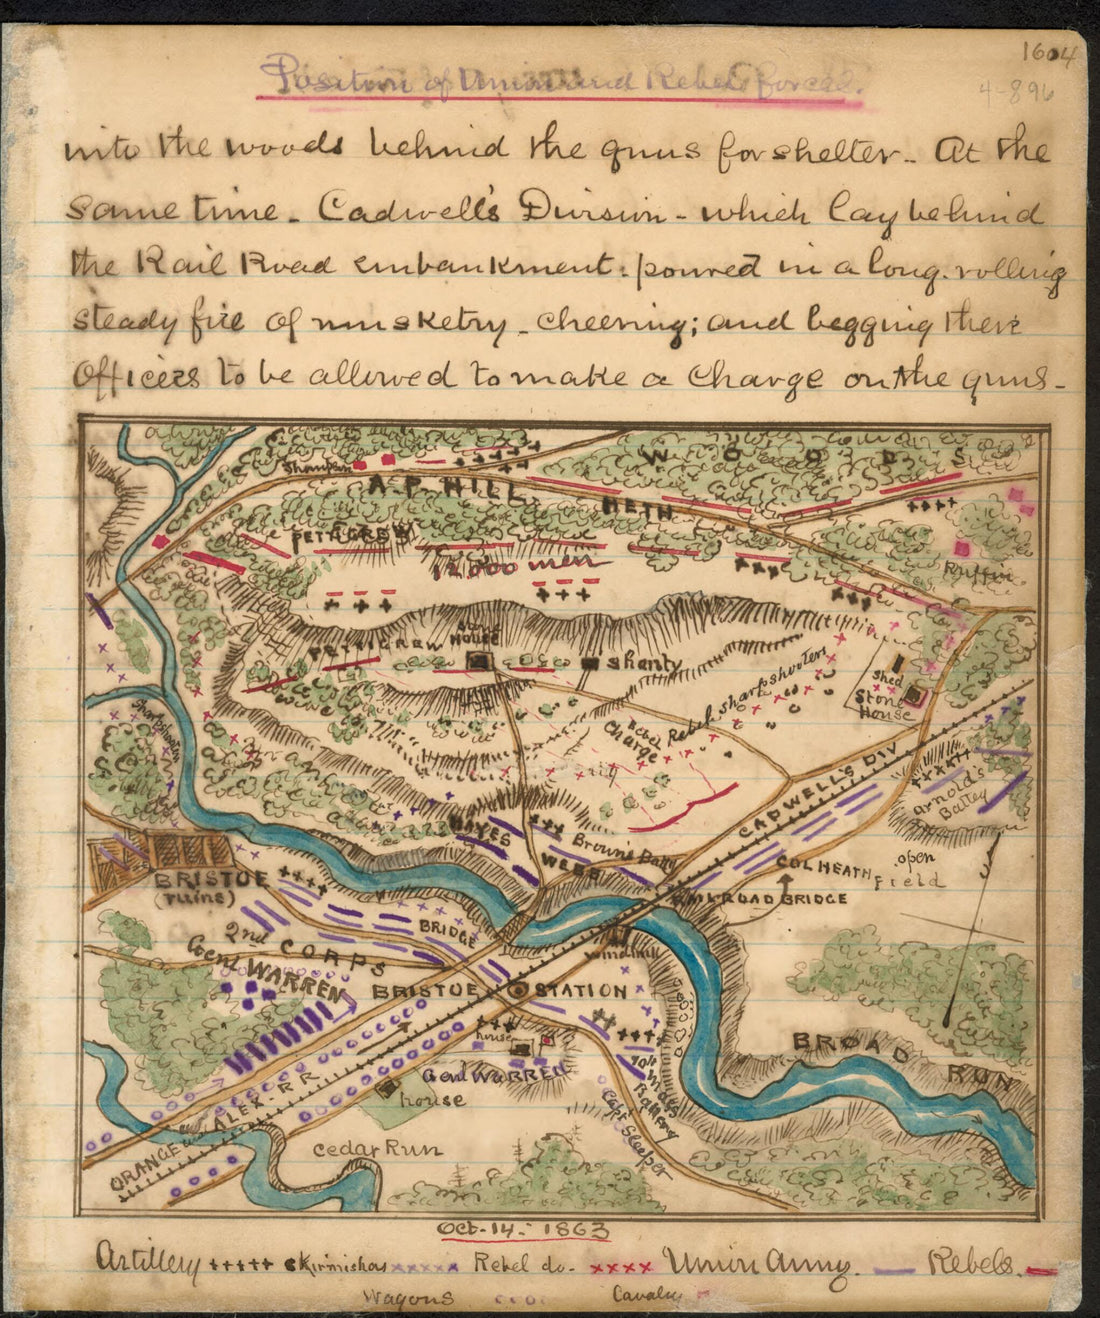 1604
4-896
Position of Union and Rebel forces.
into the woods behind the guns for shelter. At the
same time - Cadwell's Division - which lay behind
the Rail Road embankment. poured in a long. rolling
steady fire of musketry - cheering; and begging there
Officers to be allowed to make a charge on the guns -
WOODS
A.P. HILL
HETH
PETAGREW
12,000 men
Ruffin
PETTIGREW
Stone
HOUSE
Shanty
Shed
Stone
House
Rebel sharpshooters
Rebel
Charge
CADWELL'S DIV
Arnold's
Battey
HAYES
WEBB
Brown's Batty
COL HEATH
open
Field
RAILROAD BRIDGE
BRISTOE
(ruins)
BRIDGE
windmill
2nd CORPS
Genl WARREN
BRISTOE STATION
house
Genl WARREN
house
BROAD RUN
Battery
Capt Sleeper
ORANGE & ALEX-RR
cedar Run
Oct-14-1863
Artillery +++++ Skirmishers xxxxxx Rebel do- xxxx Union Army. — Rebels. —
Wagons Cavalry